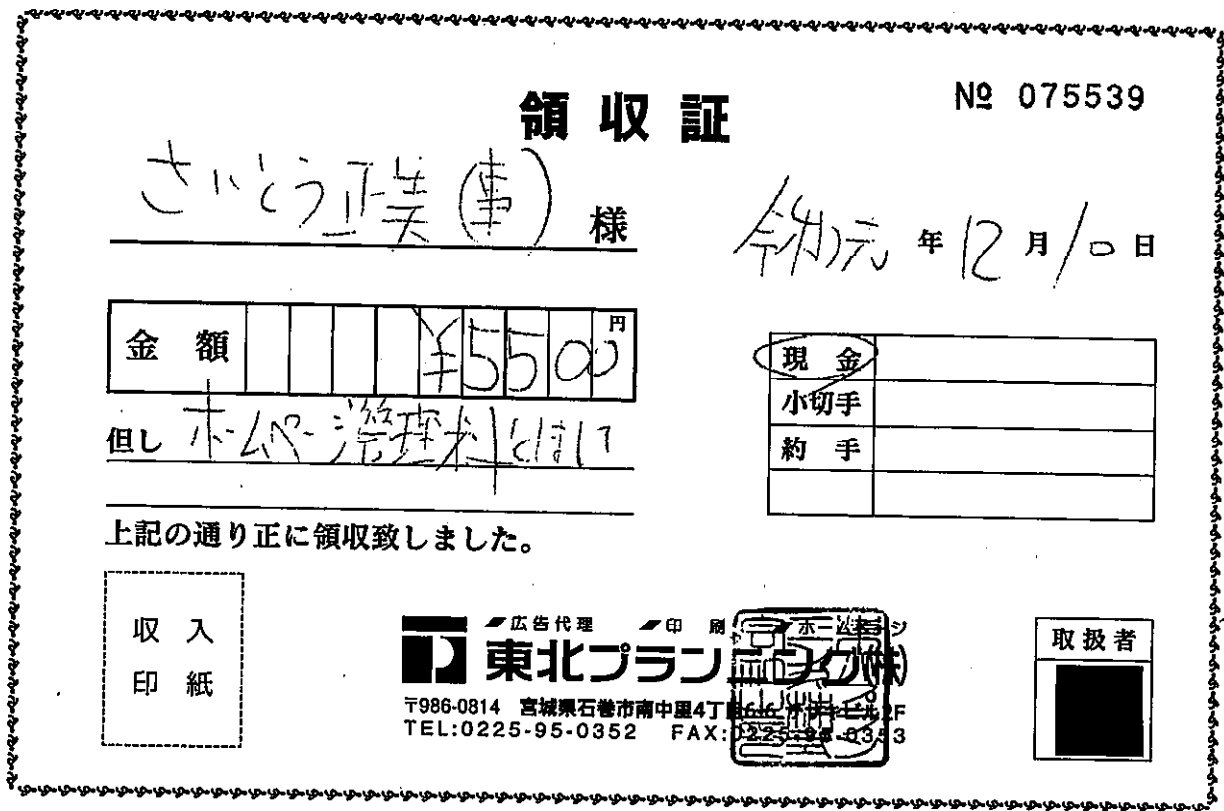 領収証
№ 075539
さいとう正美(事) 様
令和元 年 12 月 10 日
金額 ¥5500 円
但し ホームページ管理料として
現金
小切手
約手
上記の通り正に領収致しました。
収入
印紙
広告代理 印刷 ホームページ
東北プランニング(株)
〒986-0814 宮城県石巻市南中里4丁目6-6
TEL:0225-95-0352 FAX:0225-95-0353
取扱者